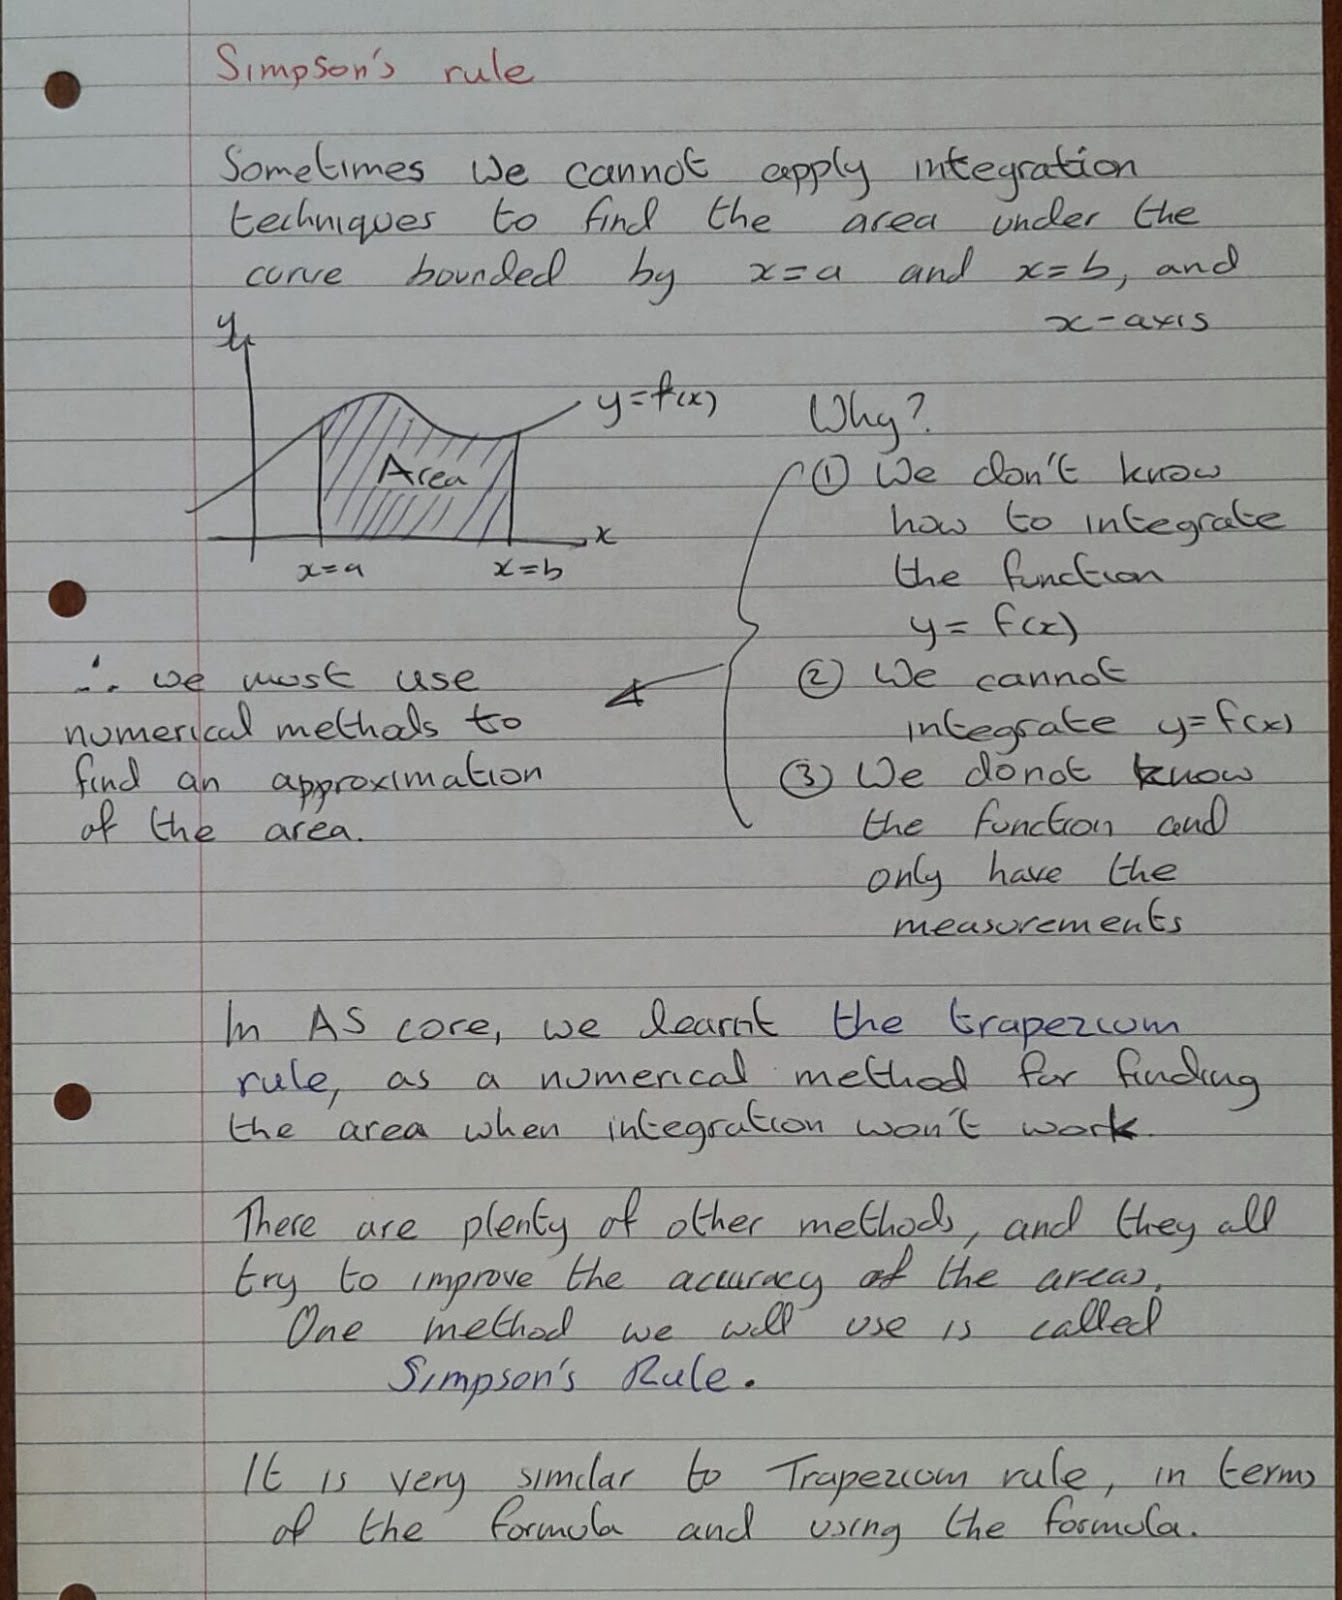 Simpson's rule
Sometimes we cannot apply integration
techniques to find the area under the
curve bounded by x=a and x=b, and
x-axis
y
y=f(x)
Area
x
x=a
x=b
Why?
① We don't know
how to integrate
the function
y = f(x)
② We cannot
integrate y=f(x)
③ We donot know
the function and
only have the
measurements
∴ we must use
numerical methods to
find an approximation
of the area.
In AS core, we learnt the trapezium
rule, as a numerical method for finding
the area when integration won't work.
There are plenty of other methods, and they all
try to improve the accuracy of the areas.
One method we will use is called
Simpson's Rule.
It is very similar to Trapezium rule, in terms
of the formula and using the formula.